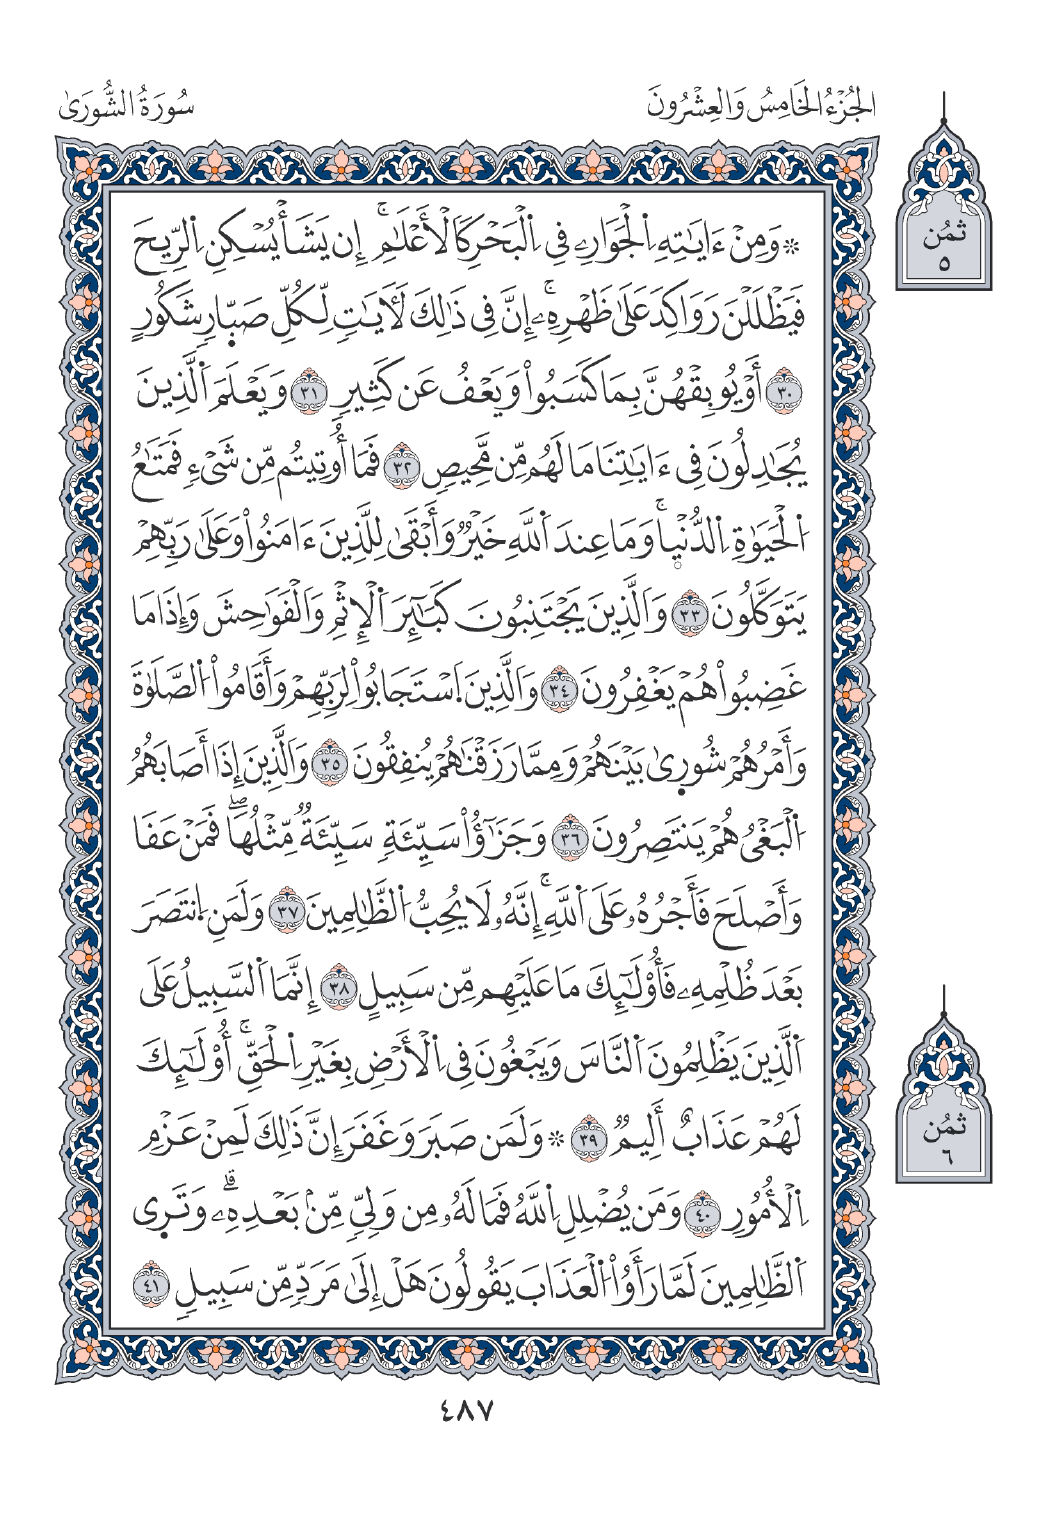 الجُزْءُ الخَامِسُ وَالعِشْرُونَ
سُورَةُ الشُّورَىٰ
ثمُن
٥
۞ وَمِنْ ءَايَـٰتِهِ اِ۬لْجَوَارِۦ فِى اِ۬لْبَحْرِ كَالْأَعْلَـٰمِۚ إِن يَشَأْ يُسْكِنِ اِ۬لرِّيحَ
فَيَظْلَلْنَ رَوَاكِدَ عَلَىٰ ظَهْرِهِۦۚ إِنَّ فِى ذَٰلِكَ لَأٓيَـٰتٍ لِّكُلِّ صَبّ۪ارٍ شَكُورٍ
٣٠ أَوْ يُوبِقْهُنَّ بِمَا كَسَبُواْ وَيَعْفُ عَن كَثِيرٍ ٣١ وَيَعْلَمَ اَ۬لَّذِينَ
يُجَـٰدِلُونَ فِى ءَايَـٰتِنَا مَا لَهُم مِّن مَّحِيصٍ ٣٢ فَمَا أُوتِيتُم مِّن شَىْءٍ فَمَتَـٰعُ
اُ۬لْحَيَوٰةِ اِ۬لدُّنْي۪اۚ وَمَا عِندَ اَ۬للَّهِ خَيْرٌ وَأَبْقَىٰ لِلَّذِينَ ءَامَنُواْ وَعَلَىٰ رَبِّهِمْ
يَتَوَكَّلُونَ ٣٣ وَالَّذِينَ يَجْتَنِبُونَ كَبَـٰٓئِرَ اَ۬لْإِثْمِ وَالْفَوَٰحِشَ وَإِذَا مَا
غَضِبُواْ هُمْ يَغْفِرُونَ ٣٤ وَالَّذِينَ اَ۪سْتَجَابُواْ لِرَبِّهِمْ وَأَقَامُواْ اُ۬لصَّلَوٰةَ
وَأَمْرُهُمْ شُور۪ىٰ بَيْنَهُمْ وَمِمَّا رَزَقْنَـٰهُمْ يُنفِقُونَ ٣٥ وَالَّذِينَ إِذَا أَصَابَهُمُ
اُ۬لْبَغْىُ هُمْ يَنتَصِرُونَ ٣٦ وَجَزَٰٓؤُاْ سَيِّئَةٍ سَيِّئَةٌ مِّثْلُهَاۖ فَمَنْ عَفَا
وَأَصْلَحَ فَأَجْرُهُۥ عَلَى اَ۬للَّهِۚ إِنَّهُۥ لَا يُحِبُّ اُ۬لظَّـٰلِمِينَ ٣٧ وَلَمَنِ اِ۪نتَصَرَ
بَعْدَ ظُلْمِهِۦ فَأُوْلَـٰٓئِكَ مَا عَلَيْهِم مِّن سَبِيلٍ ٣٨ إِنَّمَا اَ۬لسَّبِيلُ عَلَى
اَ۬لَّذِينَ يَظْلِمُونَ اَ۬لنَّاسَ وَيَبْغُونَ فِى اِ۬لْأَرْضِ بِغَيْرِ اِ۬لْحَقِّۚ أُوْلَـٰٓئِكَ
لَهُمْ عَذَابٌ أَلِيمٌ ٣٩ ۞ وَلَمَن صَبَرَ وَغَفَرَ إِنَّ ذَٰلِكَ لَمِنْ عَزْمِ
اِ۬لْأُمُورِ ٤٠ وَمَن يُضْلِلِ اِ۬للَّهُ فَمَا لَهُۥ مِن وَلِىٍّ مِّنۢ بَعْدِهِۦۗ وَتَر۪ى
اَ۬لظَّـٰلِمِينَ لَمَّا رَأَوُاْ اُ۬لْعَذَابَ يَقُولُونَ هَلْ إِلَىٰ مَرَدٍّ مِّن سَبِيلٍ ٤١
ثمُن
٦
٤٨٧